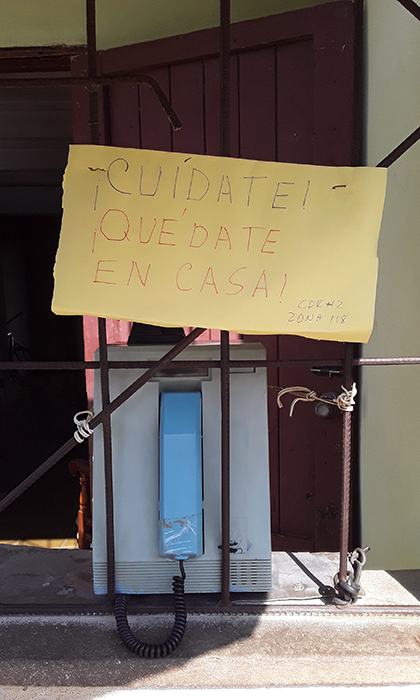 ¡CUÍDATE!
¡QUÉDATE
EN CASA!
CDR#2
ZONA 118